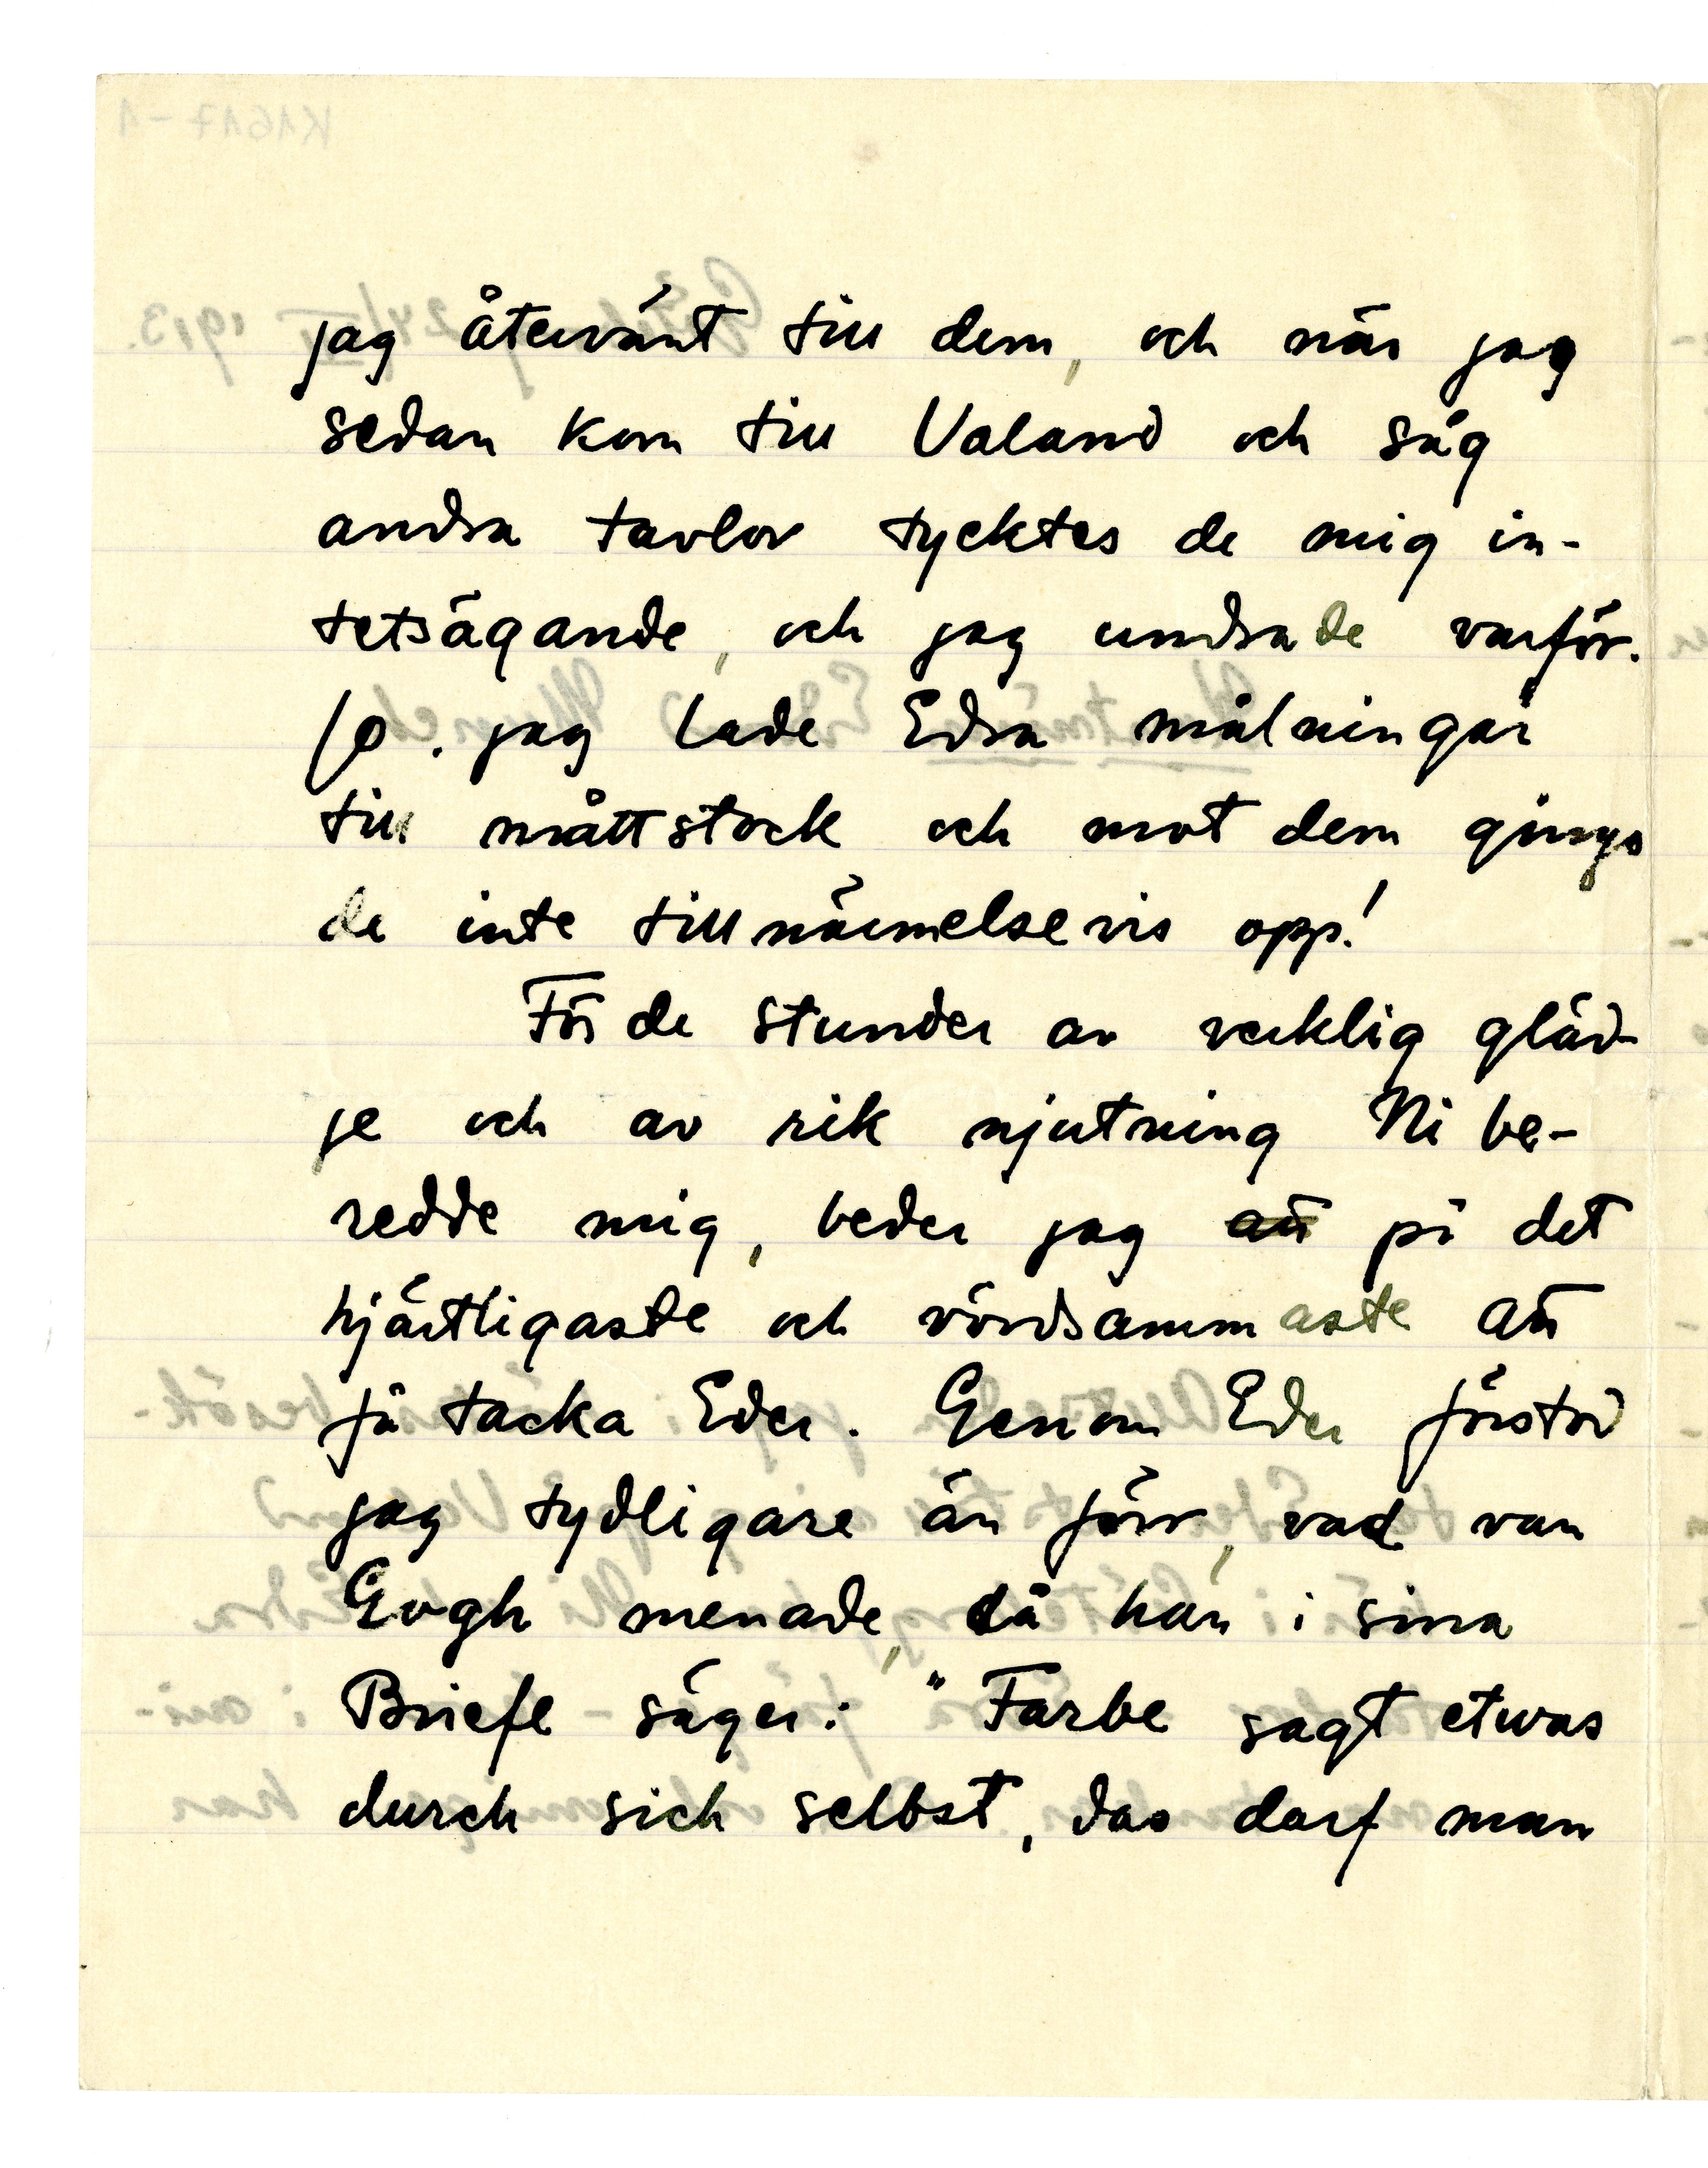 jag återvänt till dem, och när jag
sedan kom till Valand och såg
andra tavlor tycktes de mig in-
tetsägande, och jag undrade varför.
Jo. jag lade Edra målningar
till måttstock och mot dem gingo
de inte tillnärmelsevis opp!
För de stunder av verklig gläd-
je och av rik njutning Ni be-
redde mig, beder jag att på det
hjärtligaste och vördsammaste att
få tacka Eder. Genom Eder förstod
jag tydligare än förr, vad van
Gogh menade, då han i sina
Briefe säger: "Farbe sagt etwas
durch sich selbst, das darf man